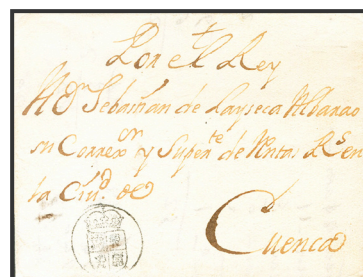 Por el Rey
A Dn Sebastian de Layseca Albarado
su Correxor y Superte de Rentas Rs en
la Ciud de
Cuenca